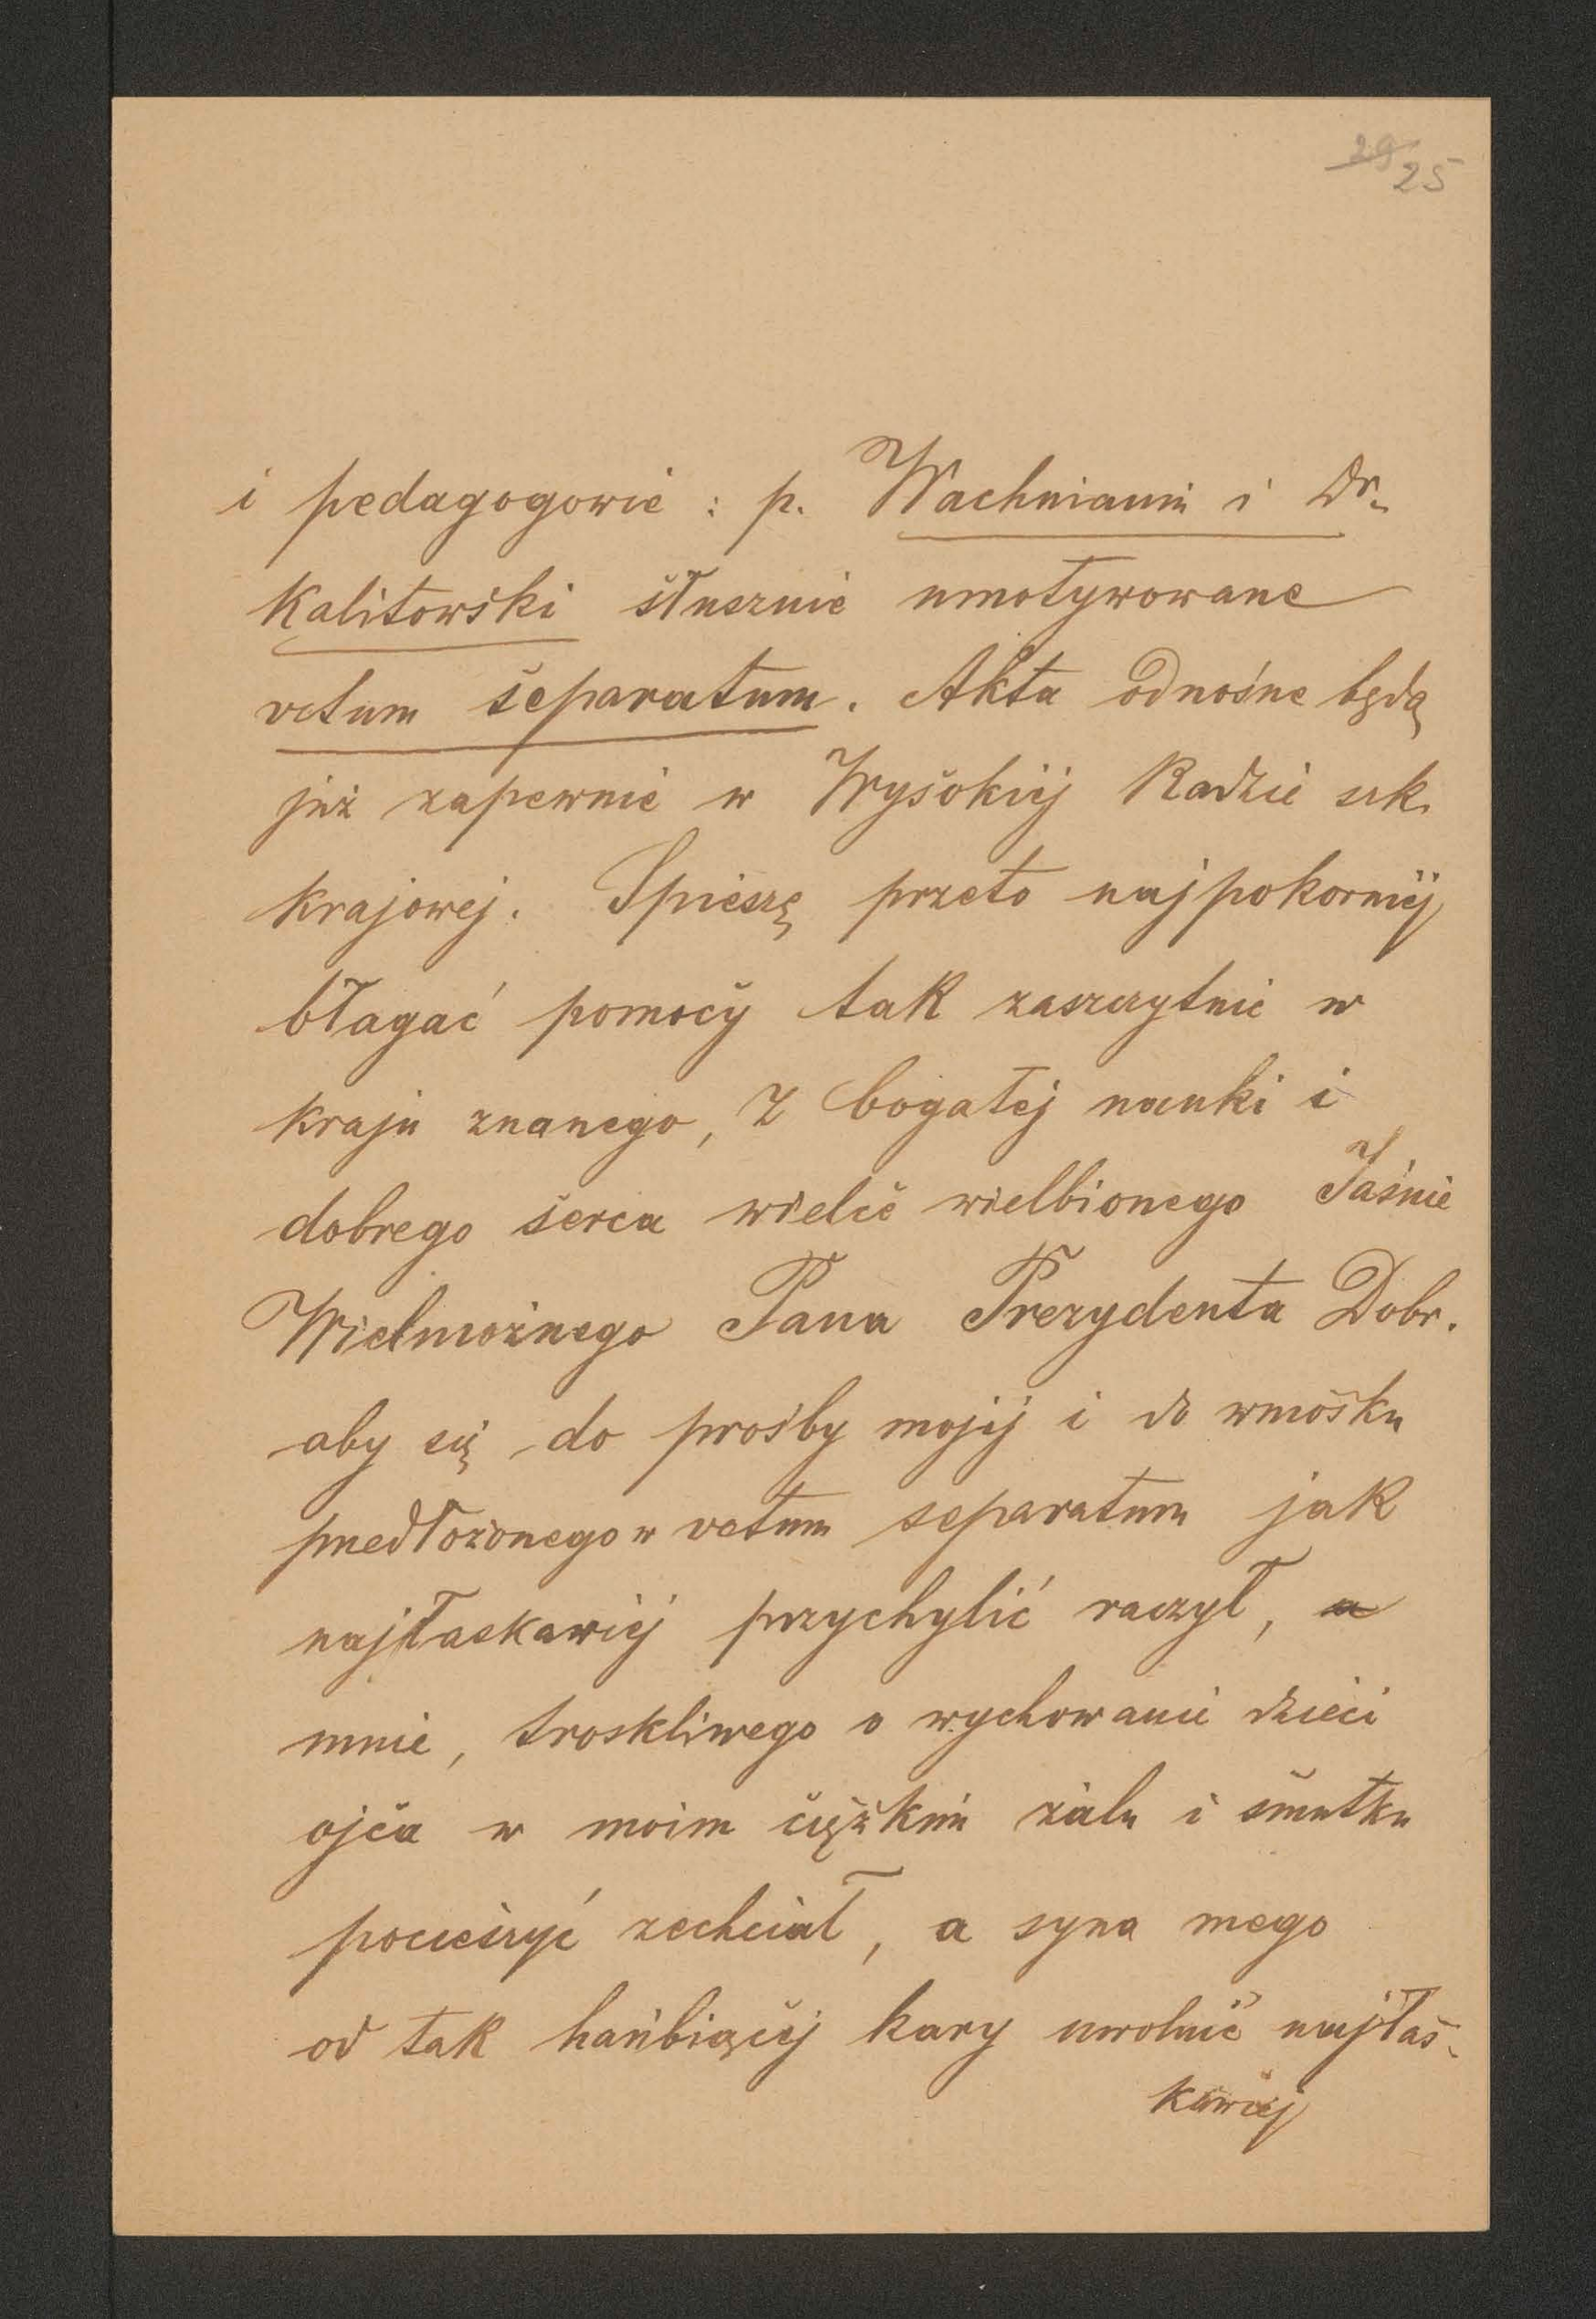 29 25
i pedagogowie : p. Wachnianin i Dr.
Kalitowski słusznie umotywowane
votum separatum. Akta odnośne będą
już zapewnie w Wysokiej Radzie szk.
krajowej. Spieszę przeto najpokorniej
błagać pomocy tak zaszczytnie w
kraju znanego, z bogatej nauki i
dobrego serca wielce wielbionego Jaśnie
Wielmożnego Pana Prezydenta Dobr.
aby się do prośby mojej i do wniosku
przedłożonego w votum separatum jak
najłaskawiej przychylić raczył, a
mnie, troskliwego o wychowanie dzieci
ojca w moim ciężkim żalu i smutku
pocieszyć zechciał, a syna mego
od tak hańbiącej kary uwolnić najłas-
kawiej